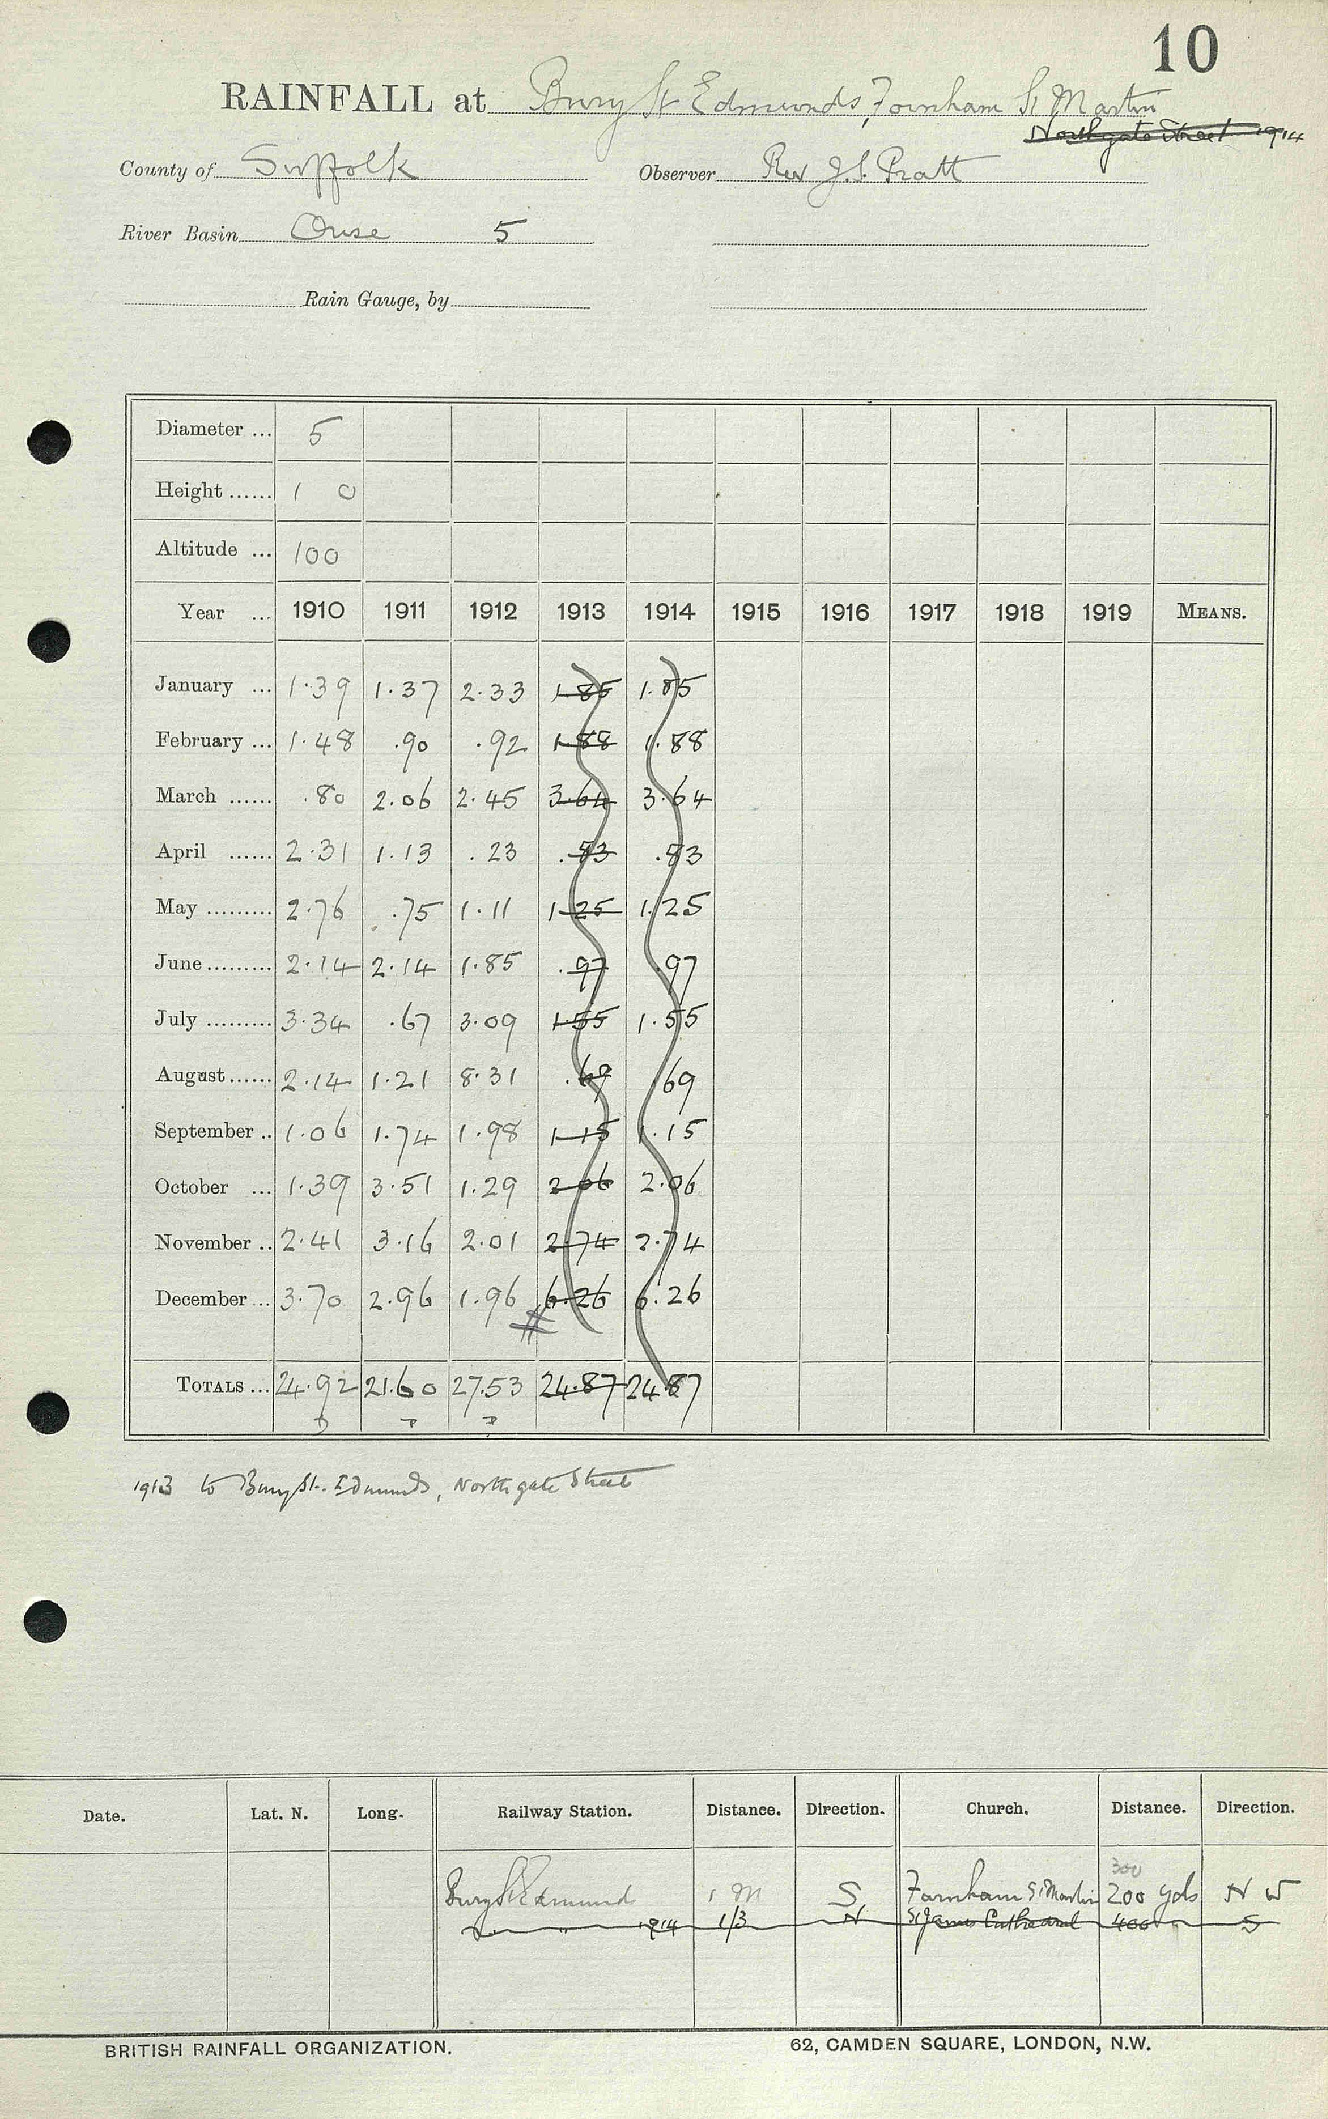 10
RAINFALL at Bury St Edmunds, Fornham St Martin
Northgate Street 1914
County of Suffolk Observer Rev J.S. Pratt
River Basin Ouse 5
Rain Gauge, by
Diameter ... 5
Height ...... 1 0
Altitude ... 100
Year ... 1910 1911 1912 1913 1914 1915 1916 1917 1918 1919 MEANS.
January ... 1.39 1.37 2.33 1.85 1.85
February ... 1.48 .90 .92 1.88 1.88
March ...... .80 2.06 2.45 3.64 3.64
April ...... 2.31 1.13 .23 .83 .83
May ......... 2.76 .75 1.11 1.25 1.25
June ......... 2.14 2.14 1.85 .97 .97
July ......... 3.34 .67 3.09 1.55 1.55
August ...... 2.14 1.21 8.31 .69 .69
September .. 1.06 1.74 1.98 1.15 1.15
October ... 1.39 3.51 1.29 2.06 2.06
November .. 2.41 3.16 2.01 2.74 2.74
December ... 3.70 2.96 1.96 6.26 6.26
#
TOTALS ... 24.92 21.60 27.53 24.87 24.87
1913 to Bury St. Edmunds, Northgate Street
Date. Lat. N. Long. Railway Station. Distance. Direction. Church. Distance. Direction.
300
Bury St Edmunds 1 M S Farnham St Martin 200 yds N W
" 1914 1/3 N St James Cathedral 400 " S
BRITISH RAINFALL ORGANIZATION. 62, CAMDEN SQUARE, LONDON, N.W.